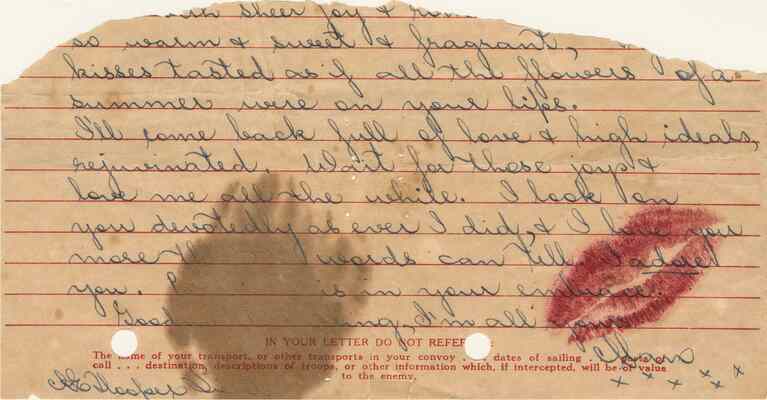 sheer joy &
so warm & sweet & fragrant,
kisses tasted as if all the flowers of a
summer were on your lips.
I'll come back full of love & high ideals,
rejuvinated. Wait for those joys &
love me all the while. I look on
you devotedly as ever I did, & I love you
more words can tell. I adore
you. is in your embrace.
Good I'm all
IN YOUR LETTER DO NOT REFER
The name of your transport, or other transports in your convoy dates of sailing . . . ports of
call . . . destination, descriptions of troops, or other information which, if intercepted, will be of value
to the enemy.
x x x x x x